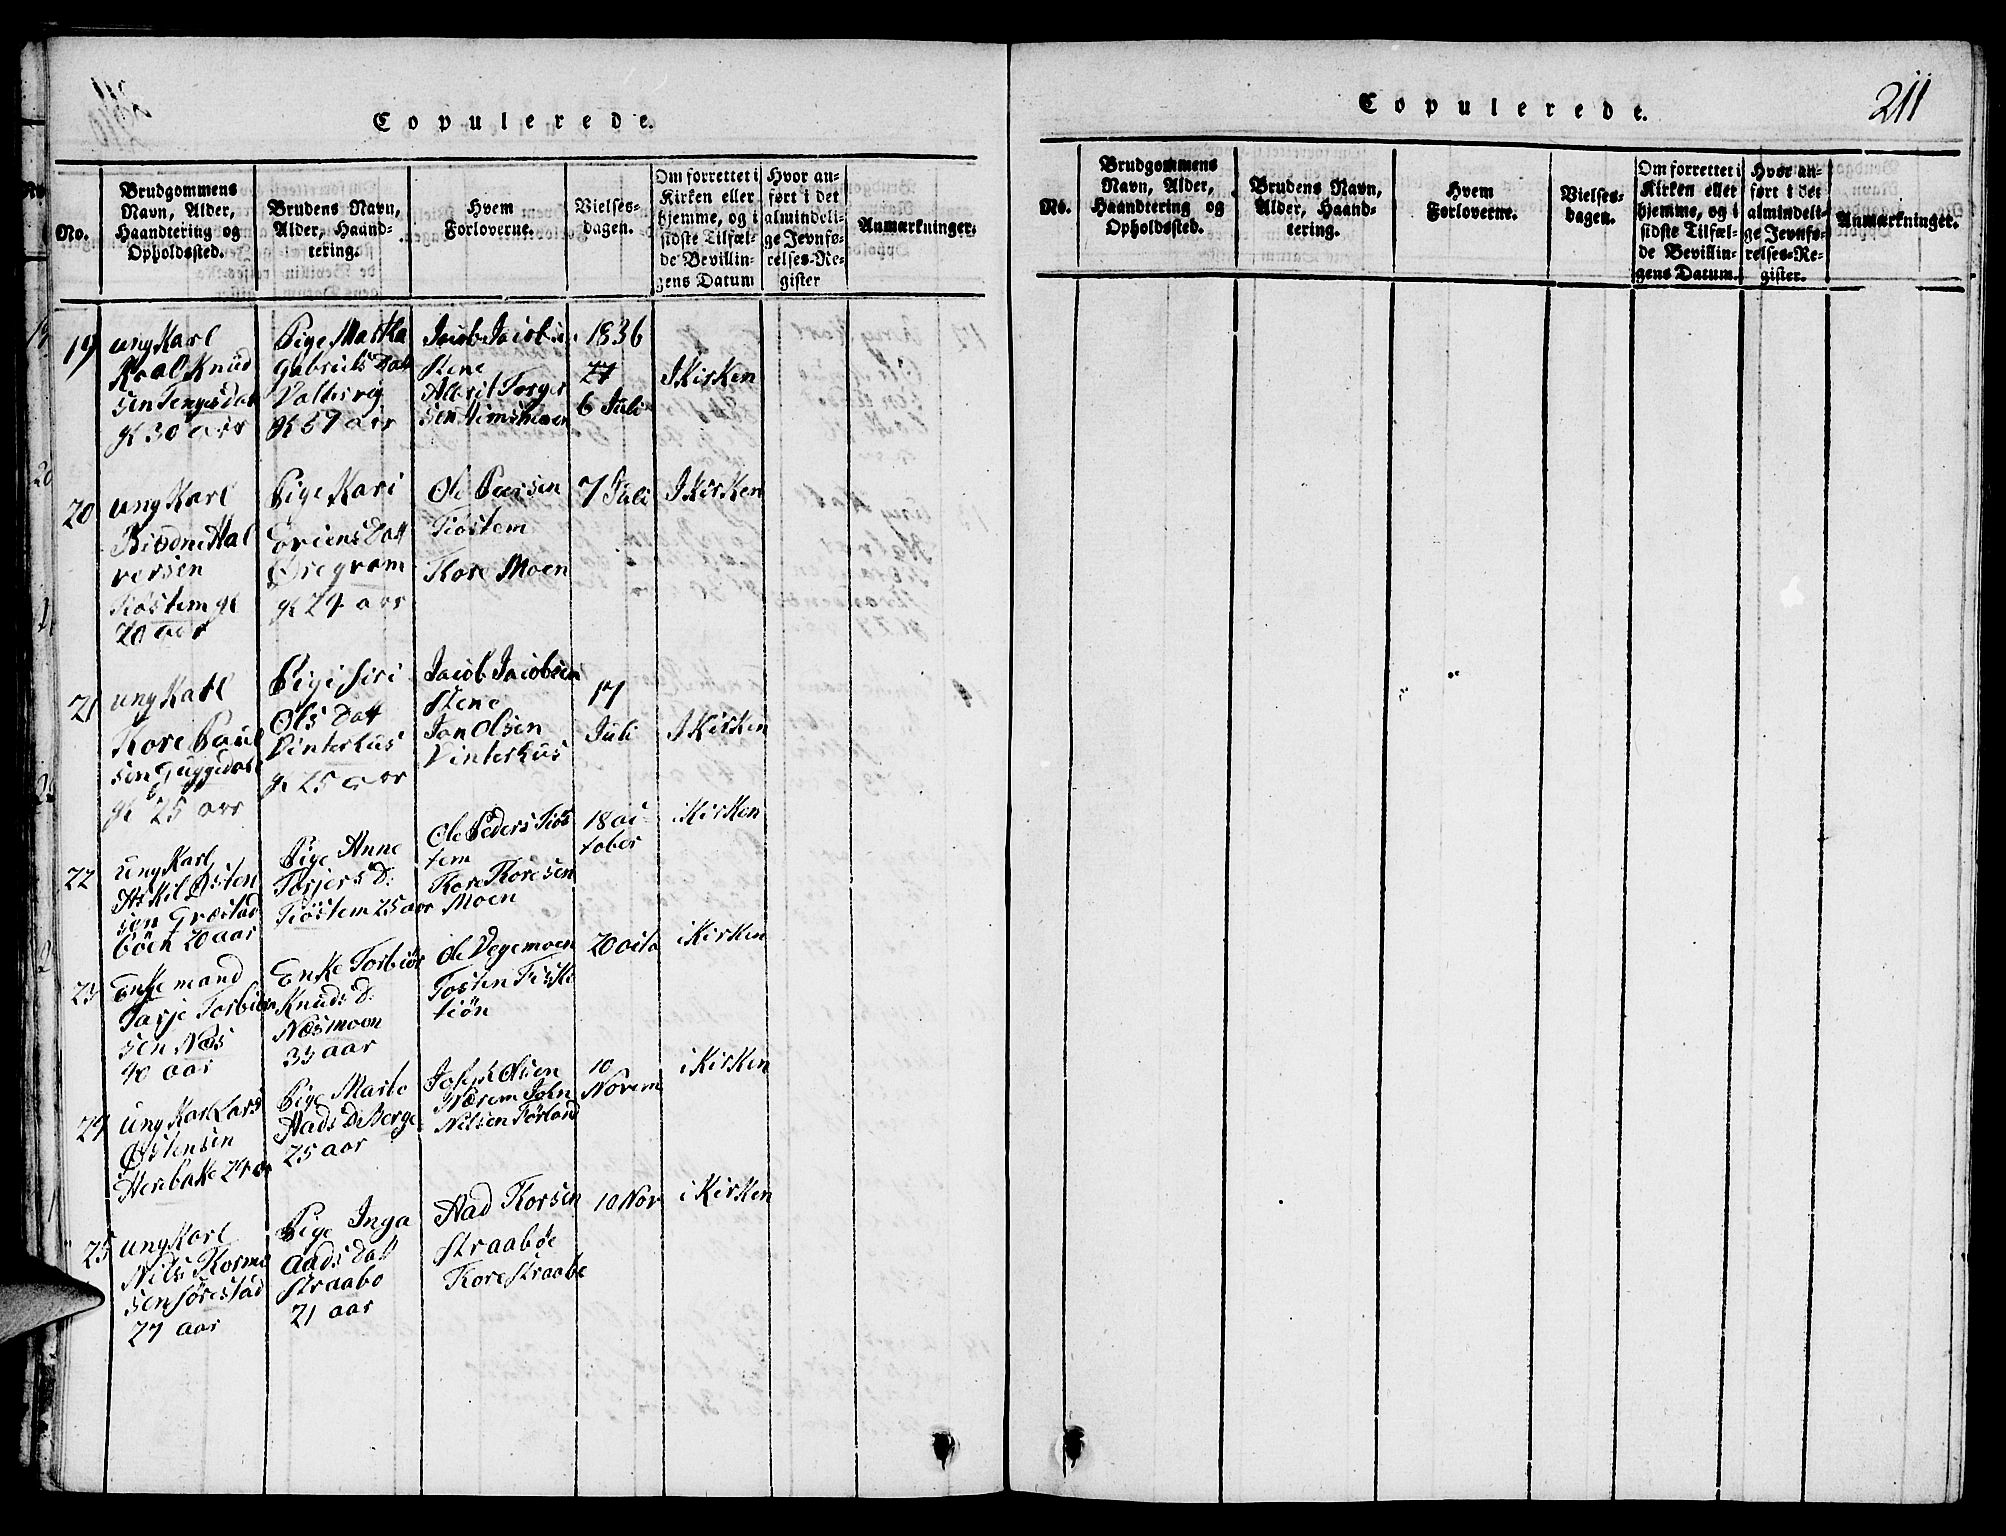 Copulerede.
No.
Brudgommens
Navn, Alder,
Haandtering og
Opholdssted.
Brudens Navn,
Alder, Haand-
tering.
Hvem
Forloverne.
Vielses-
dagen.
Om forrettet i
Kirken eller
hjemme, og i
sidste Tilfæl-
de Bevillin-
gens Datum
Hvor an-
ført i det
almindeli-
ge Jevnfø-
relses-Re-
gister
Anmærkninger.
19
ung Karl
Roal Knud
sen Tengesdal
gl 30 aar
Pige Martha
Gabriels Datt
Valtervig
gl 37 aar
Jacob Jacobsen
Stene
Torger
sen
1836
6 Juli
I Kirken
20
ung Karl
Biødne Hal
versen
Tiøstem gl
20 aar
Pige Kari
Øregram
gl 24 aar
Ole Peersen
Tiøstem
Tore Moen
7 Juli
I Kirken
21
ung Karl
Tore Paul
sen Guggedal
gl 25 aar
Pige Siri
Ols Datt
Vinterhus
gl 25 aar
Jacob Jacobsen
Stene
Jon Olsen
Vinterhus
17
Juli
I Kirken
22
ung Karl
Askil Østen
sen Græstad
bøen 20 aar
Pige Anne
Torjers D.
Tiøstem 25 aar
Ole Peders Tiøs
tem
Tore Toresen
Moen
18 oc
tober
i Kirken
23
Enkemand
Tarje Torbiørn
sen Næs
40 aar
Enke Torbiør
Knuds D.
Næsmoen
33 aar
Ole Vegemoen
Tosten Fisk
tiøn
20 octo
i Kirken
24
ung Karl Lars
Østensen
Herebake 24 aar
Pige Marte
Aads D. Berge
25 aar
Joseph Olsen
Nærem John
Nilsen Førland
10
Novem
i Kirken
25
ung Karl
Nils Tormo
sen Sørestad
27 aar
Pige Inga
Aads Datt
Straabø
21 aar
Aad Torsen
Straabøe
Tore Straabø
10 Nov
i Kirken
Copulerede.
211
No.
Brudgommens
Navn, Alder,
Haandtering og
Opholdssted.
Brudens Navn,
Alder, Haand-
tering.
Hvem
Forloverne.
Vielses-
dagen.
Om forrettet i
Kirken eller
hjemme, og i
sidste Tilfæl-
de Bevillin-
gens Datum.
Hvor an-
ført i det
almindeli-
ge Jevnfø-
relses-Re-
gister.
Anmærkninger.